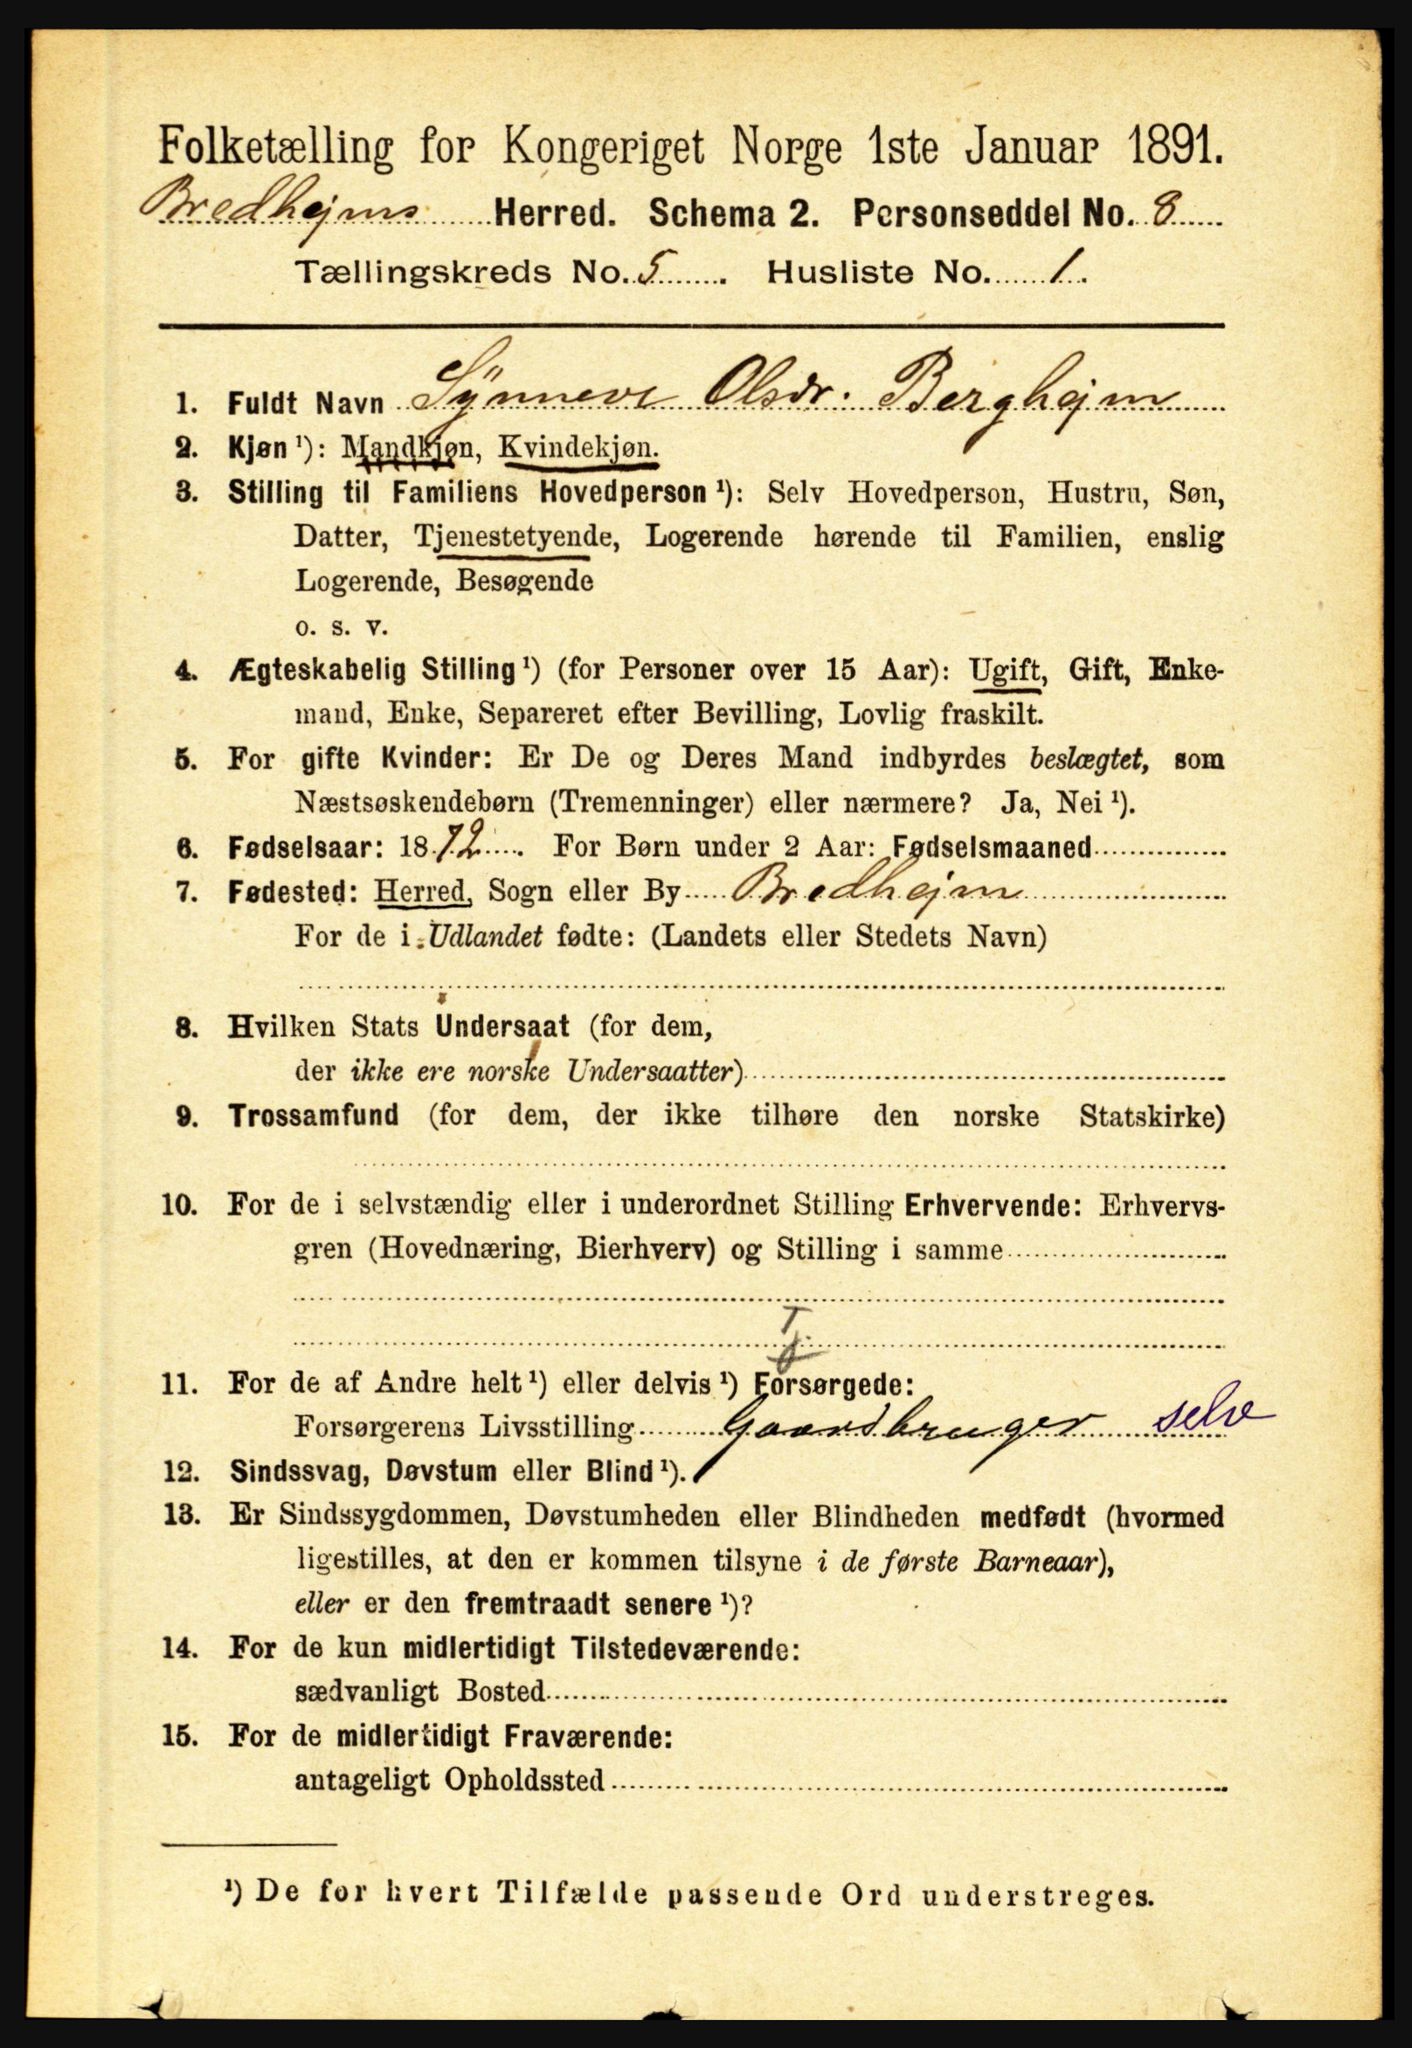 Folketælling for Kongeriget Norge 1ste Januar 1891.
Bredhejms Herred. Schema 2. Personseddel No. 8
Tællingskreds No. 5. Husliste No. 1.
1. Fuldt Navn Synneve Olsdr. Berghejm
2. Kjøn ¹): Mandkjøn, Kvindekjøn.
3. Stilling til Familiens Hovedperson ¹): Selv Hovedperson, Hustru, Søn,
Datter, Tjenestetyende, Logerende hørende til Familien, enslig
Logerende, Besøgende
o. s. v.
4. Ægteskabelig Stilling ¹) (for Personer over 15 Aar): Ugift, Gift, Enke-
mand, Enke, Separeret efter Bevilling, Lovlig fraskilt.
5. For gifte Kvinder: Er De og Deres Mand indbyrdes beslægtet, som
Næstsøskendebørn (Tremenninger) eller nærmere? Ja, Nei ¹).
6. Fødselsaar: 1872. For Børn under 2 Aar: Fødselsmaaned
7. Fødested: Herred, Sogn eller By Bredhejm
For de i Udlandet fødte: (Landets eller Stedets Navn)
8. Hvilken Stats Undersaat (for dem,
der ikke ere norske Undersaatter)
9. Trossamfund (for dem, der ikke tilhøre den norske Statskirke)
10. For de i selvstændig eller i underordnet Stilling Erhvervende: Erhvervs-
gren (Hovednæring, Bierhverv) og Stilling i samme
Tj
11. For de af Andre helt ¹) eller delvis ¹) Forsørgede:
Forsørgerens Livsstilling Gaardbruger selv
12. Sindssvag, Døvstum eller Blind ¹).
13. Er Sindssygdommen, Døvstumheden eller Blindheden medfødt (hvormed
ligestilles, at den er kommen tilsyne i de første Barneaar),
eller er den fremtraadt senere ¹)?
14. For de kun midlertidigt Tilstedeværende:
sædvanligt Bosted
15. For de midlertidigt Fraværende:
antageligt Opholdssted
¹) De for hvert Tilfælde passende Ord understreges.